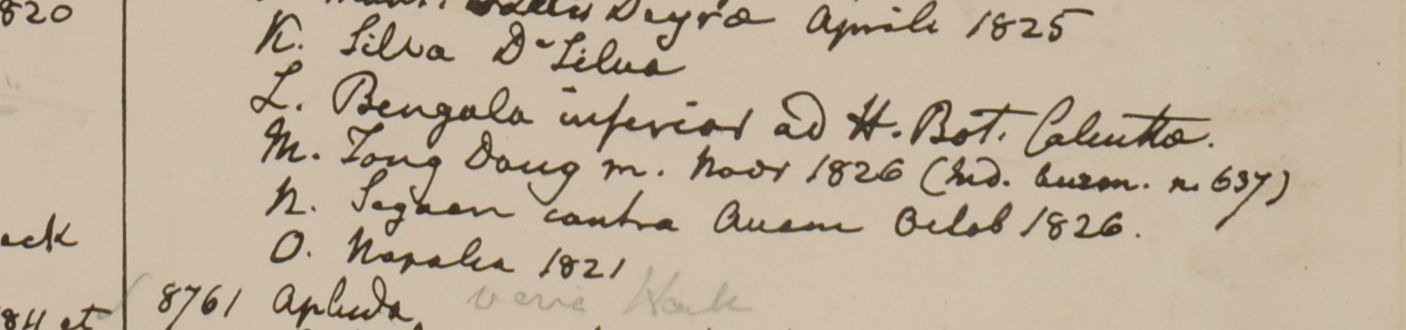 820
Deyra Aprili 1825
K. Silva D. Silva
L. Bengala inferior ad H. Bot. Calcutta.
M. Tong Doug m. Novr 1826 (Ind. burm. n. 637)
N. Segaen contra Avam Octob 1826.
O. Napalia 1821
ack
8761 Apluda